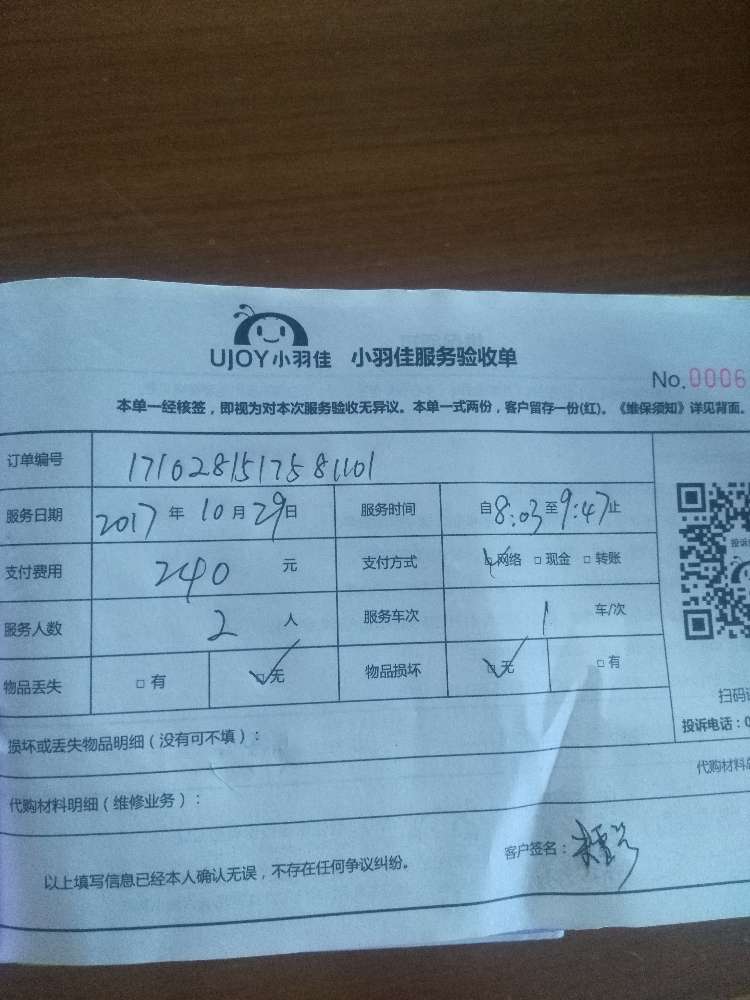 UJOY小羽佳 小羽佳服务验收单
No.0006
本单一经核签，即视为对本次服务验收无异议。本单一式两份，客户留存一份(红)。《维保须知》详见背面。
订单编号 171028151758 1101
服务日期 2017年10月29日 服务时间 自8:03至9:47止
支付费用 240 元 支付方式 □网络 □现金 □转账
服务人数 2 人 服务车次 1 车/次
物品丢失 □有 □无 物品损坏 □无 □有
扫码
损坏或丢失物品明细（没有可不填）：
投诉电话：0
代购材料明细（维修业务）：
代购材料
以上填写信息已经本人确认无误，不存在任何争议纠纷。
客户签名：